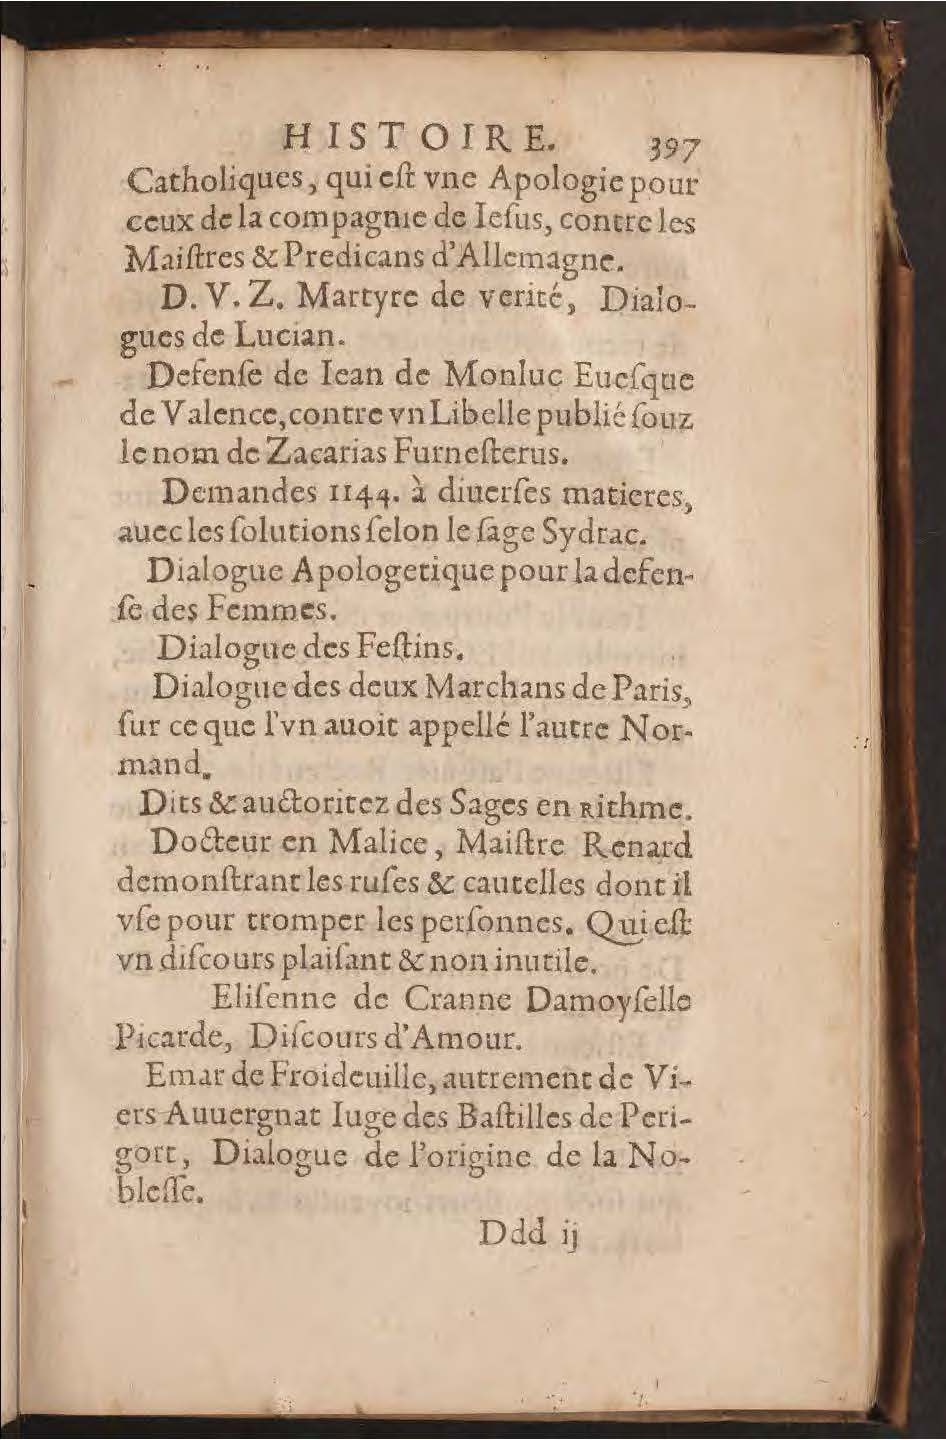 HISTOIRE. 397
Catholiques, qui eſt vne Apologie pour
ceux de la compagnie de Ieſus, contre les
Maiſtres & Predicans d'Allemagne.
D. V. Z. Martyre de verité, Dialo-
gues de Lucian.
Defenſe de Iean de Monluc Eueſque
de Valence, contre vn Libelle publié ſouz
le nom de Zacarias Furneſterus.
Demandes 1144. à diuerſes matieres,
auec les ſolutions ſelon le ſage Sydrac.
Dialogue Apologetique pour la defen-
ſe des Femmes.
Dialogue des Feſtins.
Dialogue des deux Marchans de Paris,
ſur ce que l'vn auoit appellé l'autre Nor-
mand.
Dits & auctoritez des Sages en Rithme.
Docteur en Malice, Maiſtre Renard
demonſtrant les ruſes & cautelles dont il
vſe pour tromper les perſonnes. Qui eſt
vn diſcours plaiſant & non inutile.
Eliſenne de Cranne Damoyſelle
Picarde, Diſcours d'Amour.
Emar de Froideuille, autrement de Vi-
ers Auuergnat Iuge des Baſtilles de Peri-
gort, Dialogue de l'origine de la No-
bleſſe.
Ddd ij